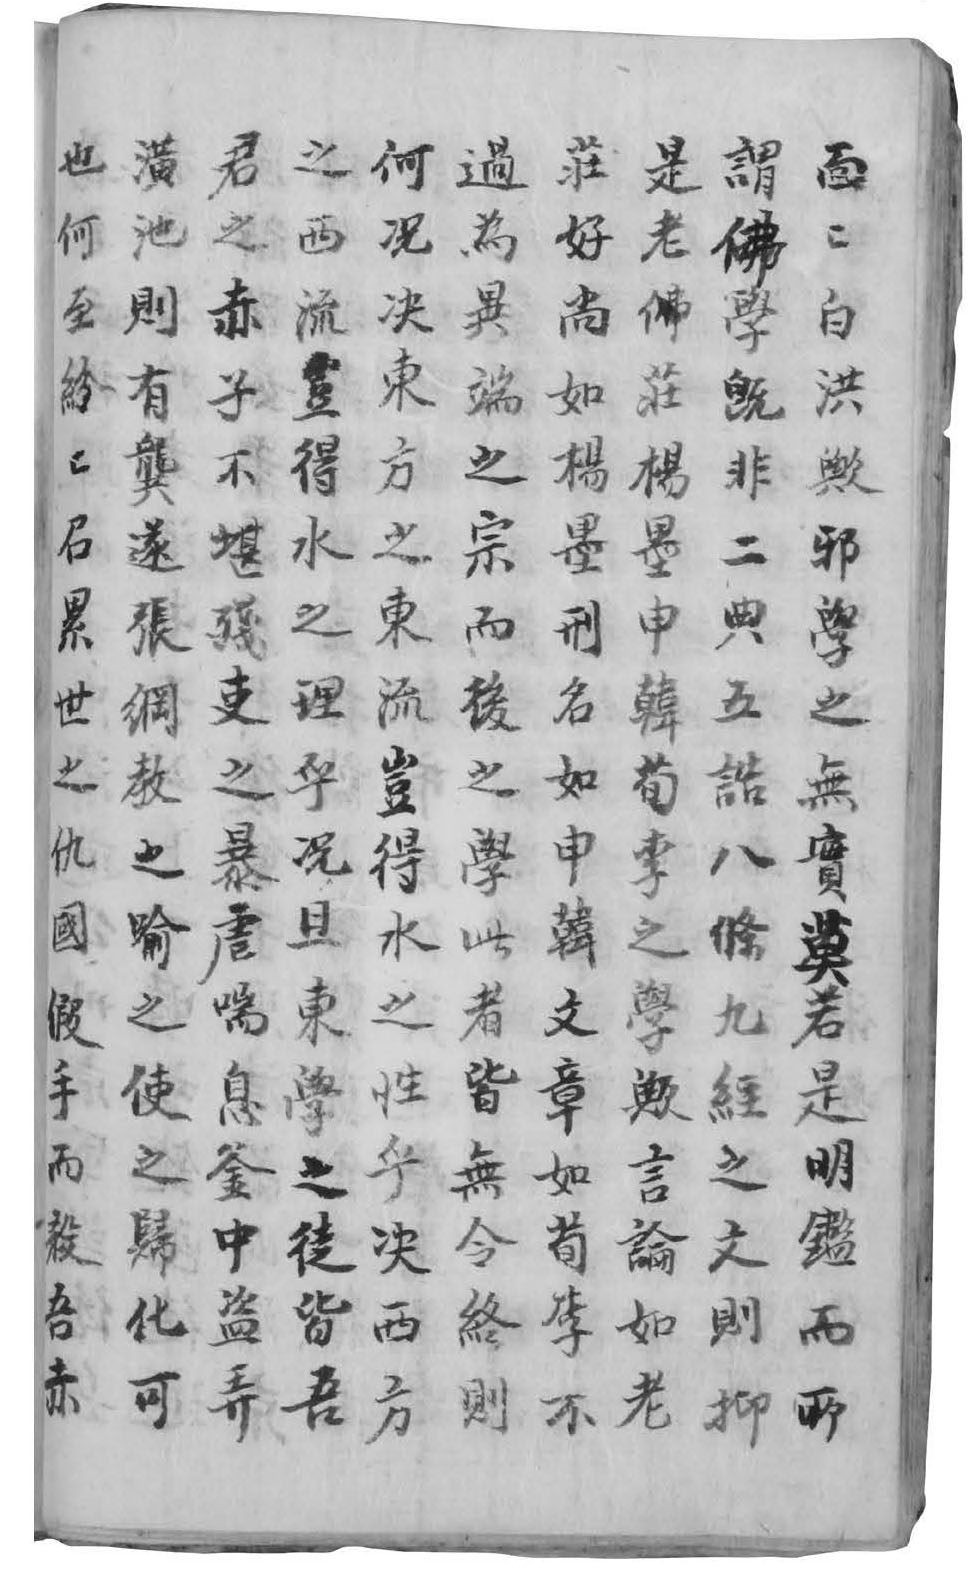 面〻白洪歟邪學之無實莫若是明鑑而所
謂佛學旣非二典五誥八條九經之文則抑
是老佛莊楊墨申韓荀李之學歟言論如老
莊好尚如楊墨刑名如申韓文章如荀李不
過為異端之宗而後之學此者皆無令終則
何况决東方之東流豈得水之性乎决西方
之西流豈得水之理乎况且東學之徒皆吾
君之赤子不堪殘吏之暴虐喘息釜中盜弄
潢池則有龔遂張綱敎之喻之使之歸化可
也何至給〻召累世之仇國假手而殺吾赤